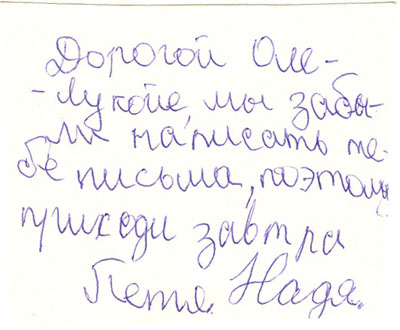 Дорогой Оле-
-Лукойе, мы забы-
ли написать те-
бе письма, поэтому
приходи завтра
Петя. Надя.